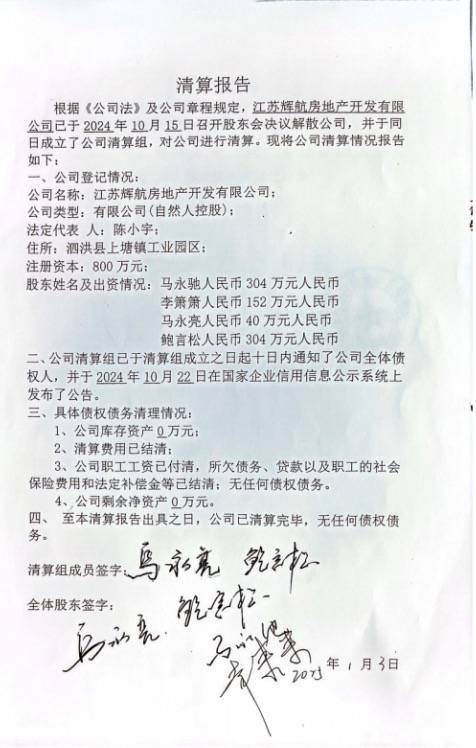 清算报告
根据《公司法》及公司章程规定，江苏辉航房地产开发有限
公司已于 2024 年 10 月 15 日召开股东会决议解散公司，并于同
日成立了公司清算组，对公司进行清算。现将公司清算情况报告
如下：
一、公司登记情况：
公司名称：江苏辉航房地产开发有限公司；
公司类型：有限公司(自然人控股)；
法定代表 人：陈小宇；
住所：泗洪县上塘镇工业园区；
注册资本：800 万元；
股东姓名及出资情况：马永驰人民币 304 万元人民币
李箫箫人民币 152 万元人民币
马永亮人民币 40 万元人民币
鲍言松人民币 304 万元人民币
二、公司清算组已于清算组成立之日起十日内通知了公司全体债
权人，并于 2024 年 10 月 22 日在国家企业信用信息公示系统上
发布了公告。
三、具体债权债务清理情况：
1、公司库存资产 0 万元；
2、清算费用已结清；
3、公司职工工资已付清，所欠债务、贷款以及职工的社会
保险费用和法定补偿金等已结清；无任何债权债务。
4、公司剩余净资产 0 万元。
四、 至本清算报告出具之日，公司已清算完毕，无任何债权债
务。
清算组成员签字：马永亮 鲍言松
全体股东签字： 鲍言松
马永亮 马永驰
2025 年 1 月 3 日